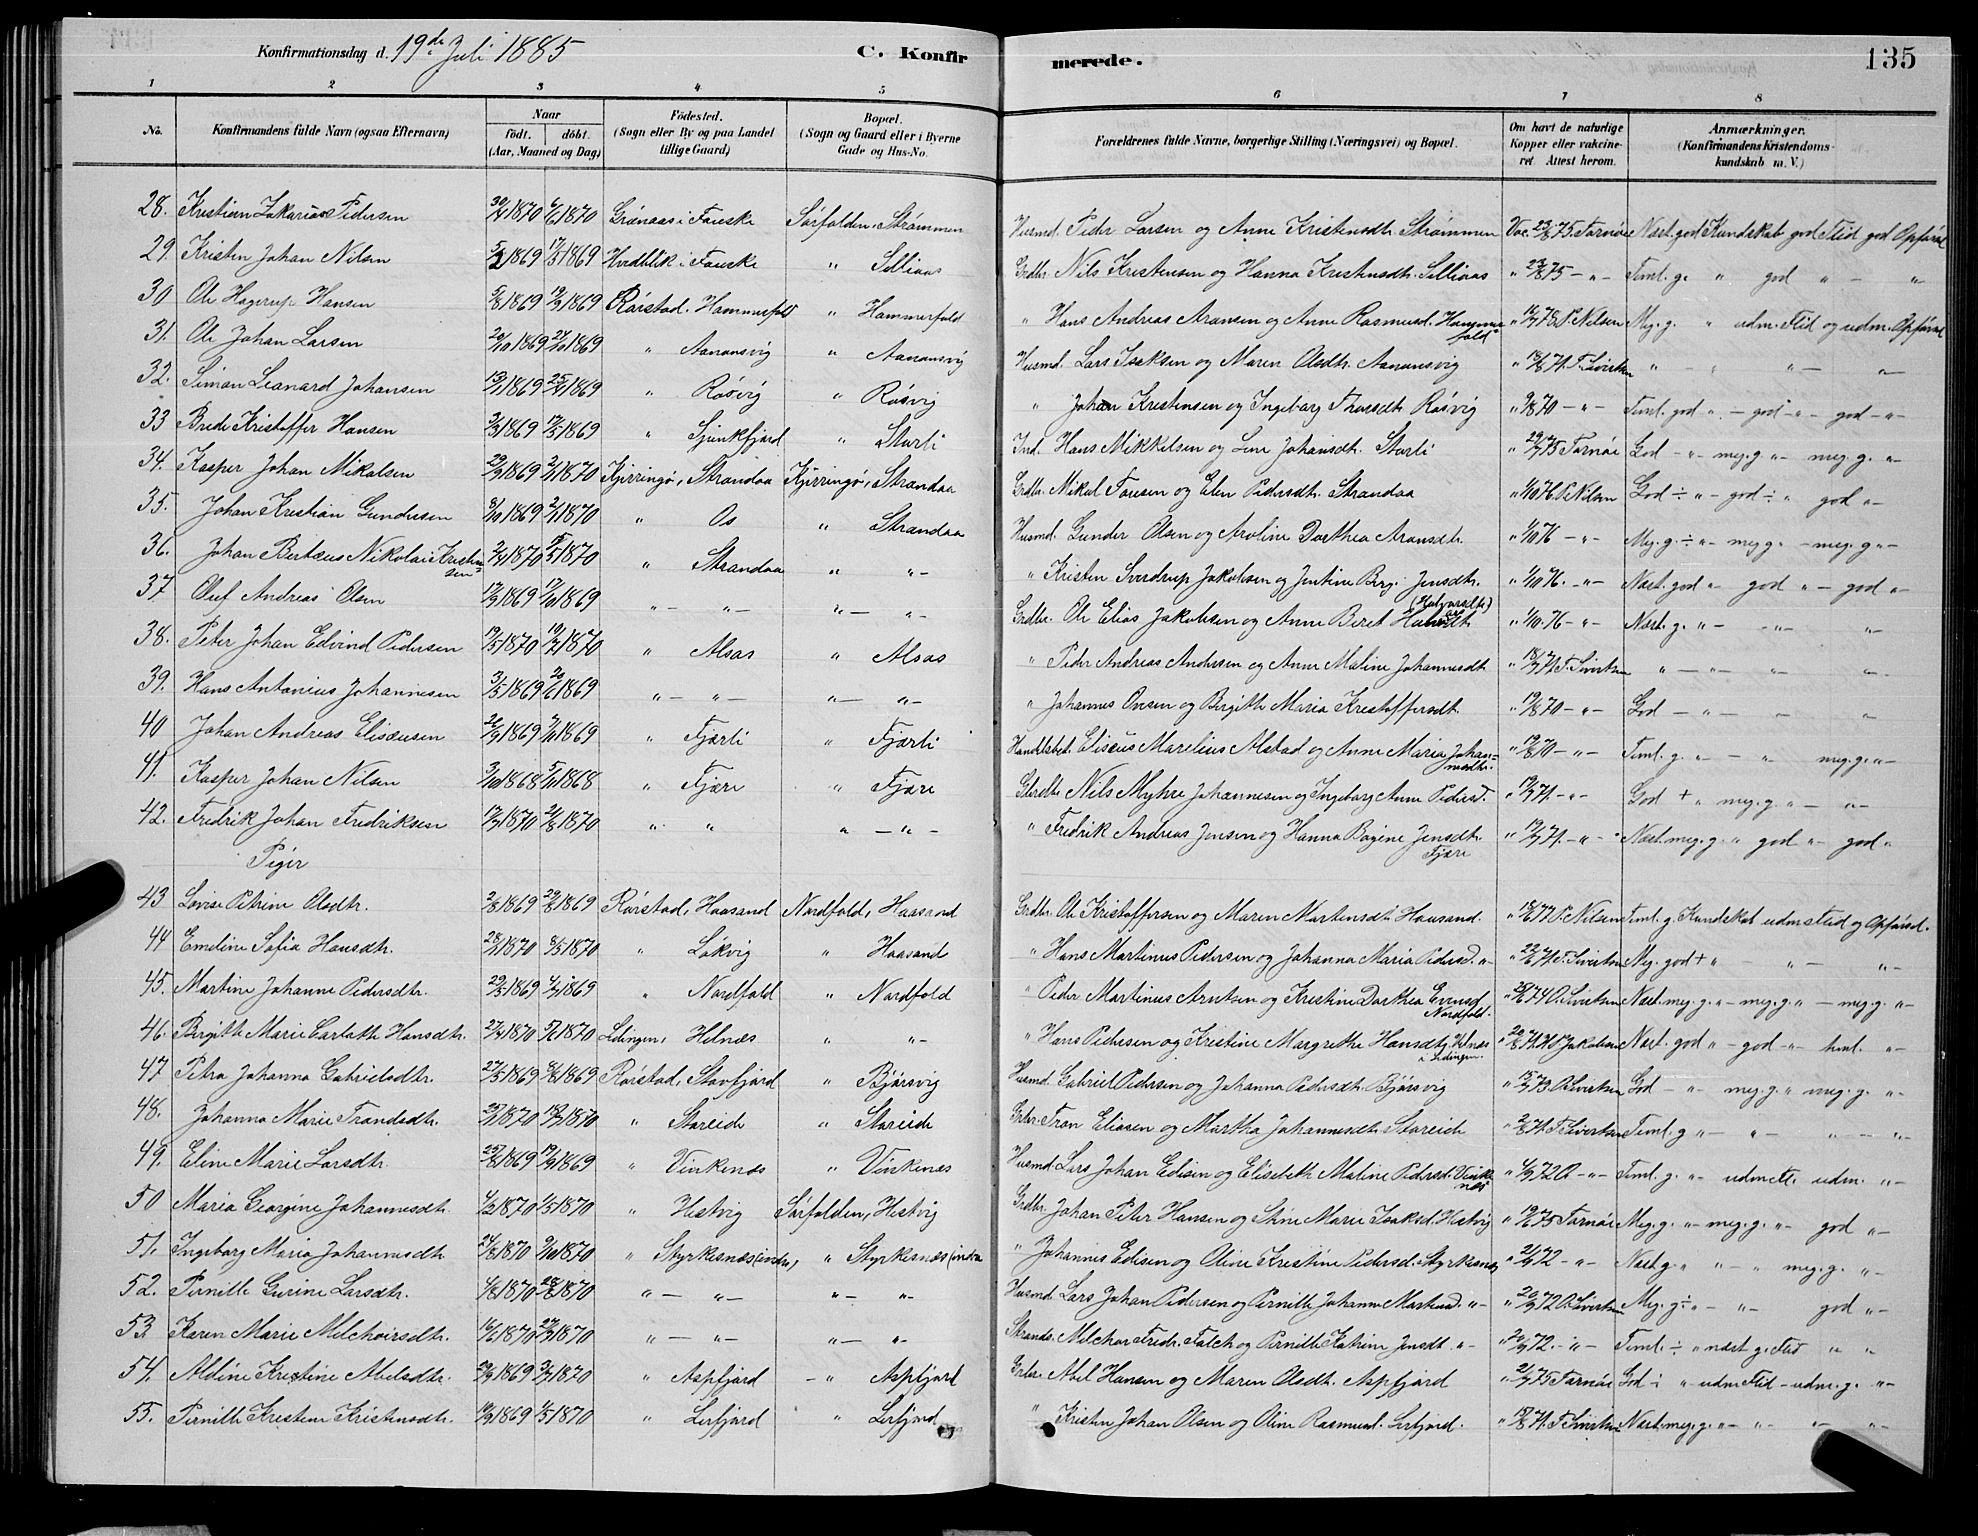 Konfirmationsdag d. 19de Juli 1885 C. Konfir merede. 135
1 2 3 4 5 6 7 8
No. Konfirmandens fulde Navn (ogsaa Efternavn) Naar født. døbt. (Aar, Maaned og Dag) Fødested. (Sogn eller By og paa Landet tillige Gaard) Bopæl. (Sogn og Gaard eller i Byerne Gade og Hus-No. Forældrenes fulde Navne, borgerlige Stilling (Næringsvei) og Bopæl. Om havt de naturlige Kopper eller vakcineret. Attest herom. Anmærkninger. (Konfirmandens Kristendomskundskab m. V.)
28. Kristian Zakarias Pedersen 1870 1870 Grønaas i Fauske Sørfolden, Strømmen Husmd. Peder Larsen og Anne Kristensdtr. Strømmen Vac. 23/8 75 Tornøe Næst. god Kundskab god Flid god Opførsel
29. Kristen Johan Nilsen 1869 1869 i Fauske " Selliaas Grdbr. Nils Kristensen og Hanna Kristensdtr. Selliaas " 23/8 75 - " - Teml. g. " god " - "
30 Ole Hagerup Hansen 5/8 1869 19/9 1869 Rørstad. Hammerfald " Hammerfald " Hans Andreas Aronsen og Anne Rasmusd. Hammerfald " 78 P. Nilsen Meg. g. " udm. Flid og udm. Opførsel
31. Ole Johan Larsen 20/10 1869 24/10 1869 " Aanansvig " Aanansvig Husmd. Lars Isaksen og Maren Olsdtr. Aanansvig " 71. T. Sivertsen " - " " - " -
32. Simon Leonard Johansen 1869 25/4 1869 " Røsvig " Røsvig " Johan Kristensen og Ingebarg Thorsdtr Røsvig " 9/8 70 - " - Teml. god " - god - " - god - " -
33 Brede Kristoffer Hansen 1869 1869 " Sjunkfjord " Storli Ind. Hans Mikkelsen og Lene Johansdtr. Storli " 75 Tornøe God - " - meg. g. " - meg. g. " -
34. Kasper Johan Mikalsen 29/9 1869 2/1 1870 Kjerringø, Strandaa Kjerringø, Strandaa Grdbr. Mikal Tovesen og Elen Pedersdtr. Strandaa " 1/10 76 P. Nilsen God ÷ " - god ÷ " god " -
35. Johan Kristian Gundersen 8/10 1869 2/1 1870 " Os " Strandaa Husmd. Gunder Olsen og Aroline Dorthea Aronsdtr. " 1/10 76 - " - Meg. g. ÷ " - meg g. - meg. g " -
36. Johan Berteus Nikolai Kristensen 2/4 1870 1870 " Strandaa " " - " Kristen Sverdrup Jakobsen og Jentine Berg. Jensdtr. " 1/10 76. - " - Næst. god " god " - god " -
37 Oluf Andreas Olsen 1869 17/10 1869 " - " - " - " - Grdbr. Ole Elias Jakobsen og Anne Beret (Halvarsdtr) " 1/10. 76 - " - Næst. g. " - - " - " -
38. Peter Johan Edvind Pedersen 1870 1870 " Alsos " Alsos " Peder Andreas Andersen og Anne Maline Johannesdtr " 71 T. Sivertsen " - " - - " - " -
39. Hans Antonius Johannesen 3/5 1869 20/6 1869 " - " - " - " - " Johannes Ovesen og Birgithe Maria Kristoffersdt. " 19/8 70 - " - God - " - " "
40 Johan Andreas Eliseusen 26/9 1869 1869 " Fjærli " Fjærli Handelsbet. Eliseus Marelius Alstad og Anne Maria Johannesdtr. " 19/8 70 - " - Teml. g. " - - " meg. g. " -
41. Kasper Johan Nilsen 3/10 1868 1868 " Fjære " Fjære Nils Myhre Johannesen og Ingebarg Anne Pedersd. " 71. - " - God + " meg. g. " - " -
42. Fredrik Johan Fredriksen 1870 21/8 1870 " " " - " - " Fredrik Andreas Jensen og Hanna Bogine Jensdtr. Fjære " 71. - " - Næst. meg. g. " god " - god "
Piger
43 Lovise Petrine Olsdtr. 2/8 1869 29/8 1869 Rørstad, Haasand Nordfold, Haasand Grdbr. Ole Kristoffersen og Maren Martensdtr. Haasand. " 72 P. Nilsen Teml. g. Kundskab udm Flid og Opførsel.
44 Emeline Sofia Hansdtr. 1870 8/5 1870 " Løkvig " Haasand " Hans Martinus Pedersen og Johanna Maria Pedersd. " - " 71. T. Sivertsen Meg. god + " - " - " -
45. Martine Johanne Pedersdtr. 29/5 1869 4/7 1869 " Nordfold " Nordfold " Peder Martinus Arntsen og Kristine Dorthea Evensd. Nordfold. " 74 O. Sivertsen Næst. meg. g. " - meg. g. " - meg. g. " -
46. Birgithe Marie Carlotte Hansdtr. 1870 1870 Lødingen, Helnæs " " - " Hans Pedersen og Kristine Margrethe Hansdtr. Helnæs i Lødingen. " 71. Jakobsen Næst. god " - god - " - teml. " -
47 Petra Johanna Gabrielsdtr. 27/5 1869 1869 Rørstad, Stavfjord " Bjørsvig Husmd. Gabriel Pedersen og Johanna Pedersdtr. Bjørsvig " 73 O. Sivertsen God - " - meg. g. " meg. g. " -
48. Johanna Marie Trondsdtr. 1870 1870 " Storeide " Storeide Grbr. Tron Eliasen og Martha Johannesdtr. Storeide " 71. T. Sivertsen Teml. g " - " - " - " -
49. Eline Marie Larsdtr. 25/8 1869 19/9 1869 " Vinkenæs " Vinkenæs Husmd. Lars Johan Edisen og Elisebeth Maline Pedersd. Vinkenæs " 4/9 72 O - " - Teml. g. " - udmerk. udm. " -
50 Maria Georgine Johannesdtr. 4/2 1870 1/5 1870 " Hestvig Sørfolden, Hestvig Grdbr. Johan Peter Hansen og Stine Marie Isaksd. Hestvig " 75 Tornøe Meg. g. " - meg. g. " - god " -
51. Ingebarg Maria Johannesdtr 24/8 1870 9/10 1870 " Styrkesnæs (indre) " Styrkesnæs (indre " Johannes Edisen og Oline Kristine Pedersd. Styrkesnæs " 72 - " - Næst g. " " - " meg. g. "
52. Pernille Gurine Larsdtr. 1870 28/8 1870 " - " - " - " - Husmd. Lars Johan Pedersen og Pernille Johanne Martensd. " - " 72 O. Sivertsen Meg. g ÷ " - " - god " -
53. Karen Marie Melchoirsdtr. 16/6 1870 1870 " - " - " - " - Strands. Melchor Fredr. Falch og Pernille Katrine Jensdt. " - " 72. - " - Teml. ÷ " næst g. Flid " "
54. Aldine Kristine Abelsdtr. 29/9 1869 1870 " Aspfjord - " Aspfjord Grbr. Abel Hansen og Maren Olsdtr. Aspfjord " 75 Tornøe God ÷ " udm Flid - udm. g. " -
55. Pernille Kristine Kristensdtr. 1869 1/5 1870 " Lerfjord " Lerfjord " Kristen Johan Olsen og Oline Rasmusd. Lerfjord. " 71. T. Sivertsen Næst. meg. g. " - " - " - " -